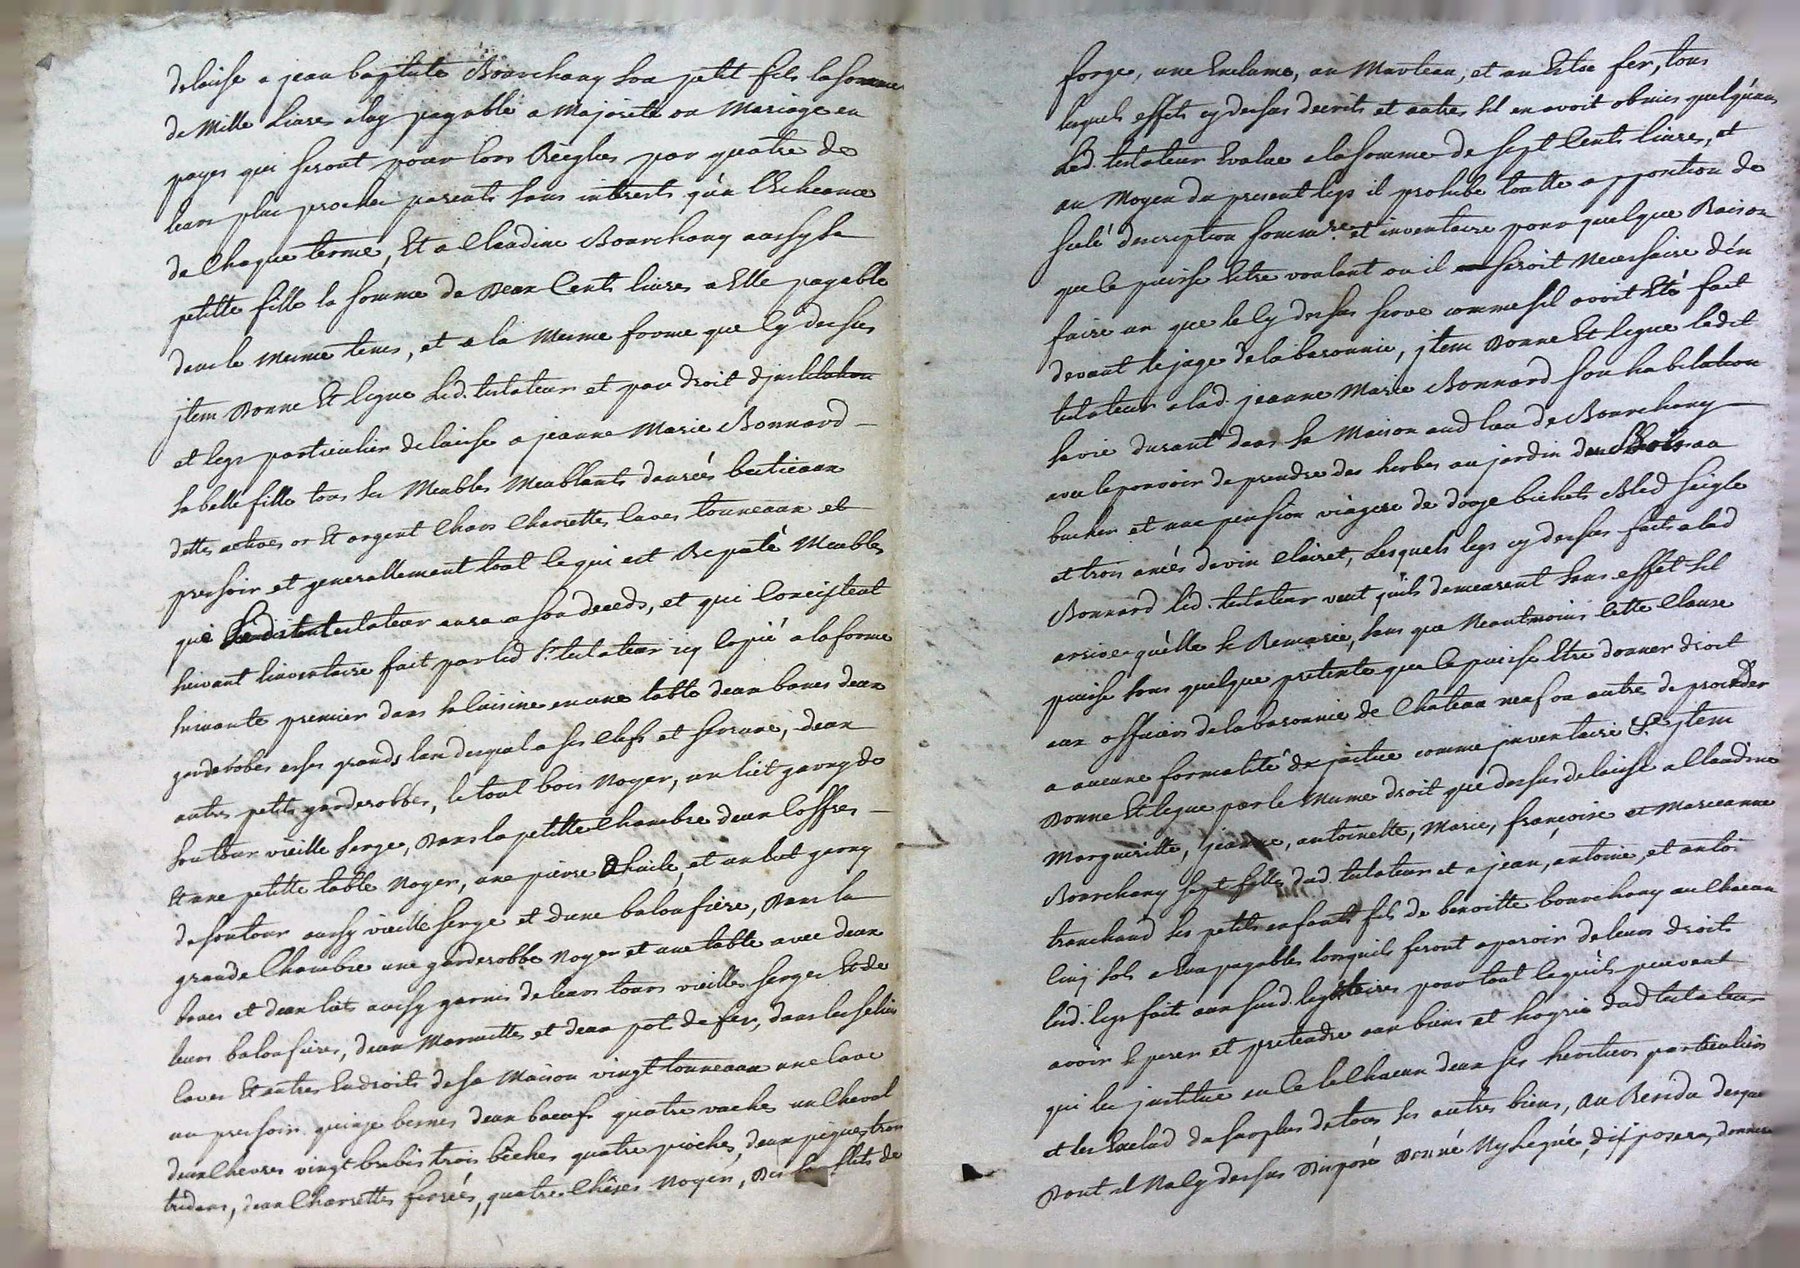 delaisse a jean baptiste Bourchany son petit fils la somme
de Mille Livres a luy payable a Majorité ou Mariage en
payes qui seront pour lors Réeglees par quatre de
leurs plus proches parents sans interests qu'a l'Echeance
de Chaque terme, Et a Claudine Bourchany aussy sa
petitte fille la somme de Deux Cents livres a Elle payable
dans le Meme tems, et a la Meme forme que Cy dessus
jtem Donne Et legue Led. testateur et par droit d'jnstitution
et legs particulier delaisse a jeanne Marie Bonnard
sa belle fille tous ses Meubles Meublants danrées bestieaux
dettes actives or Et argent Chars Charettes Caves tonneaux et
pressoir et generallement tout Ce qui est Reputé Meubles
que Ledit testateur aura a son deceds, et qui Concistent
suivant l'inventaire fait par led Sr. testateur icy Copié a la forme
suivante premier dans sa Cuisine en une table deux bancs deux
garderobes asses grands l'un desquels a ses Clefs et serrure, deux
autres petits garderobbes, le tout bois Noyer, un liet garny de
son tour vieille serge, Dans la petitte Chambre deux Coffres
Et une petitte table Noyer, une pierre D'huile, et un liet garny
de son tour aussy vieille serge et d'une baloufiere, Dans la
grande Chambre une garderobbe Noyer et une table avec deux
bancs et deux liets aussy garnis de leurs tours vieilles serges Et de
leurs baloufieres, deux Marmittes et deux pot de fer, dans les seliers
Caves Et autres Endroits de sa Maison vingt tonneaux une Cave
un pressoir quinze bennes deux boeufs quatre vaches un Cheval
deux Chevres vingt brebis trois bêches quatre pioches, deux piques, trois
tridans, deux Charettes ferrées, quatre Chêses Noyer, Des soufflets de
forge, une Enclume, un Marteau, et un Estre fer, tous
lesquels effets cy dessus decrits et autres sil en avoit obmis quelqu'uns
Led. testateur Evalue a la somme de sept Cents livres, et
au Moyen du present legs il prohibe toutte apposition de
scelé description sommre. et inventaire pour quelque Raison
que Ce puisse Estre voulant ou il seroit Necessaire d'en
faire un que le Cy dessus serve comme sil avoit Eté fait
devant le juge de la baronnie, jtem Donne Et legue ledit
testateur a lad. jeanne Marie Bonnard son habitation
sa vie durant dans sa Maison aud lieu de Bourchany
avec le pouvoir de prendre des herbes au jardin du Bois au
bucher et une pension viagere de douze bichets Bled seigle
et trois anées de vin Clairet, Lesquels legs cy dessus faits a lad
Bonnard led. testateur veut qu'ils demeurent sans effet sil
arrive qu'elle se Remarie, sans que Neantmoins Cette Clause
puisse sous quelque pretexte que Ce puisse Etre donner droit
aux officiers de la baronnie de Chateau neuf ou autre de proceder
a aucune formalité de justice comme jnventaire &c. jtem
Donne Et legue par le Meme droit que dessus delaisse a Claudine
Margueritte, jeanne, antoinette, Marie, françoise et Marieanne
Bourchany sept filles dud. testateur et a jean, antoine, et antoi.
tranchand ses petits enfants fils de benoitte bourchany a Chacun
Cinq sols a Eux payables lorsquils feront aparoir de leurs droits
led. legs fait aux sud. legataires pour tout Ce qu'ils peuvent
avoir Esperer et pretendre aux biens et hoyrie dud testateur
qui les jnstitue en Ce le Chacun d'eux ses heritiers particuliers
et les Exclud du surplus de tous ses autres biens, au Residu desquels
Dont il Na Cy dessus Disposé Donné Ny Legué, disposera, donnera